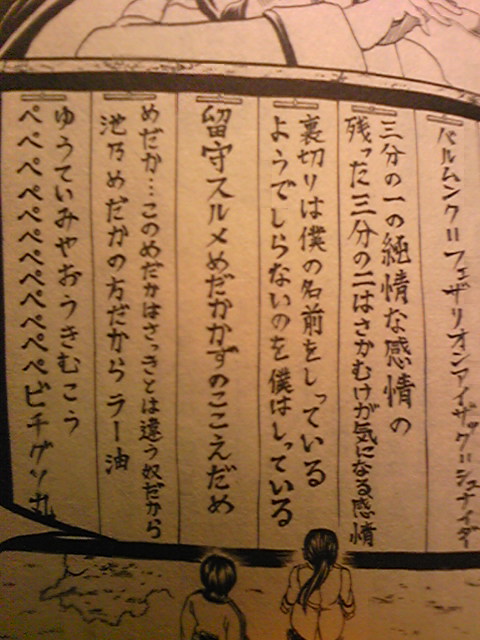 バルムンク＝フェザリオンアイザック＝シュナイダー
三分の一の純情な感情の
残った三分の二はさかむけが気になる感情
裏切りは僕の名前をしっている
ようでしらないのを僕はしっている
留守スルメめだかかずのここえだめ
めだか…このめだかはさっきとは違う奴だから
池乃めだかの方だからラー油
ゆうていみやおうきむこう
ペペペペペペペペペペペペビチグソ丸